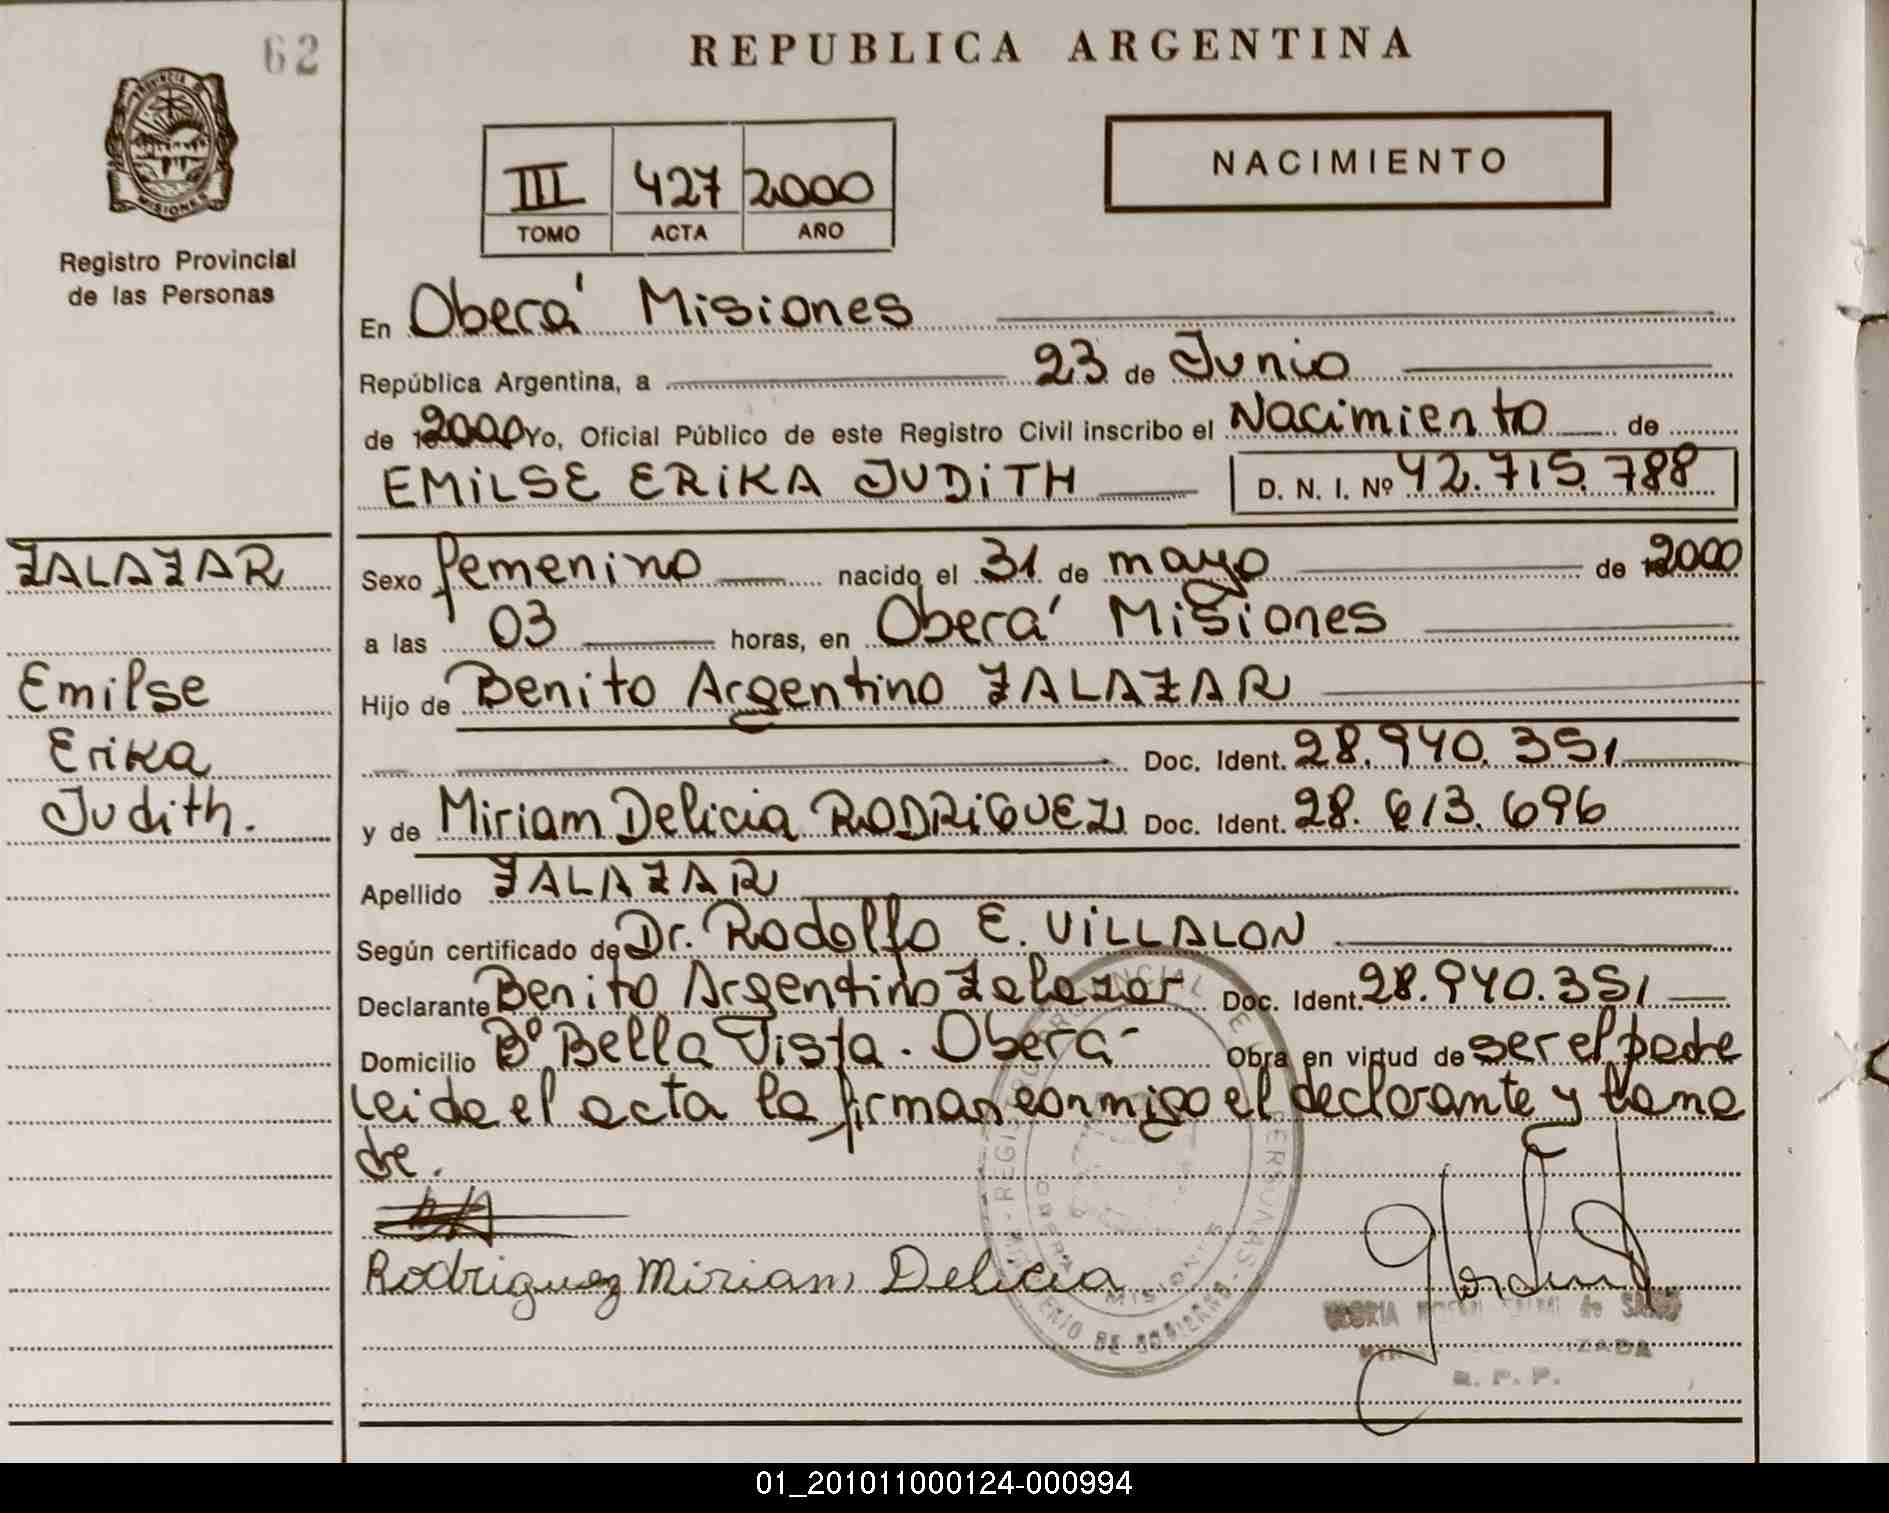 62
REPUBLICA ARGENTINA
III 427 2000
TOMO ACTA AÑO
NACIMIENTO
MISIONES
Registro Provincial
de las Personas
En Oberá Misiones
República Argentina, a 23 de Junio
de 2000 Yo, Oficial Público de este Registro Civil inscribo el Nacimiento de
EMILSE ERIKA JUDITH D. N. I. Nº 42.715.788
ZALAZAR
Emilse
Erika
Judith.
Sexo femenino nacido el 31 de mayo de 2000
a las 03 horas, en Oberá Misiones
Hijo de Benito Argentino ZALAZAR
Doc. Ident. 28.940.351
y de Miriam Delicia RODRIGUEZ Doc. Ident. 28.613.696
Apellido ZALAZAR
Según certificado de Dr. Rodolfo E. VILLALON
Declarante Benito Argentino Zalazar Doc. Ident. 28.940.351
Domicilio Bº Bella Vista. Oberá Obra en virtud de ser el padre
Leida el acta la firman conmigo el declarante y la ma
dre.
Rodriguez Miriam Delicia
MISIONES
R. P. P.
01_201011000124-000994